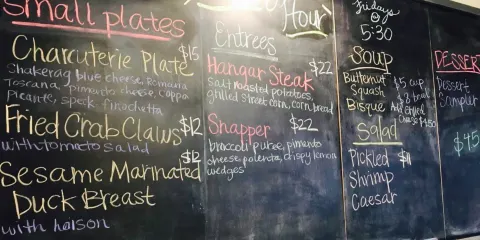 Small plates
Charcuterie Plate $15
Chakerag blue cheese, Romania
Toscana, pimento cheese, coppa
Picante, speck, finochetta
Fried Crab Claws $12
with tomato salad
Sesame Marinated $12
Duck Breast
with
Hour
Entrees
Hangar Steak $22
salt roasted potatoes
grilled street corn, corn bread
Snapper $22
broccoli puree, pimento
cheese, polenta, crispy lemon
wedges
Fridays
@
5:30
Soup
Butternut
Squash
Bisque
$5 cup
Add Grilled
Cheese $4.50
Salad
Pickled $11
Shrimp
Caesar
DESSERT
Dessert
Sampler
$45